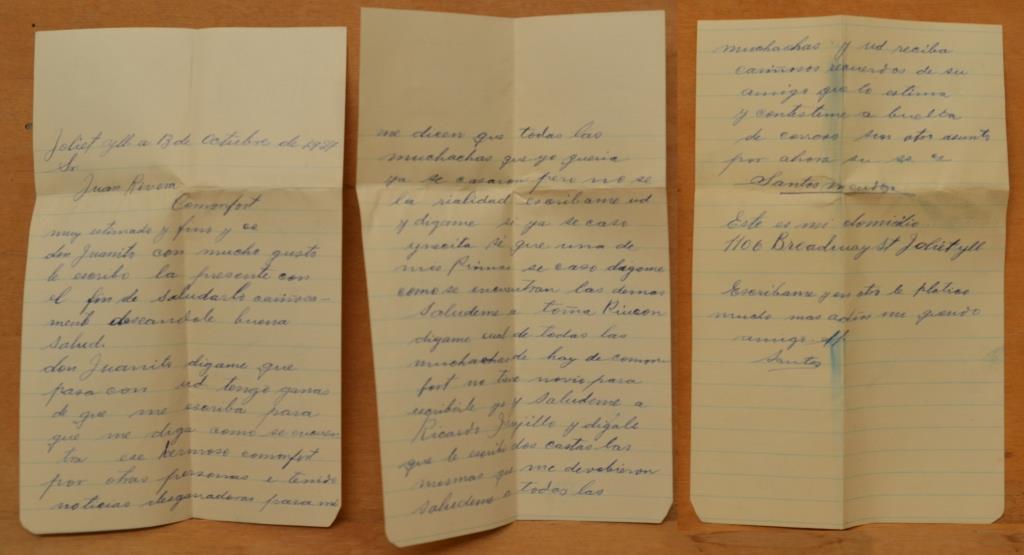 Joliet yll a 13 de octubre de
Sr
Juan Rivera
Comonfort
muy estimado y fino y es
don Juanito con mucho gusto
le escribo la presente con
el fin de saludarlo cariñosa-
mente deseandole buena
salud.
don Juanito digame que
pasa con ud tengo ganas
de que me escriba para
que me diga como se encuen
tra ese hermoso comonfort
por otras personas e tenido
noticias desganadoras para mi
me dicen que todas las
muchachas que yo queria
ya se casaron pero no se
la rialidad escribame ud
y digame si ya se caso
si que una de
mis Primas se caso digame
como se encuentran las demas
Saludeme a toña Rincon
digame cual de todas las
muchachas de hay de comon
fort no tiene novio para
escribirle yo y saludeme a
Ricardo Trujillo y digale
que le escribi dos cartas las
mesmas que me devobieron
saludeme a todas las
muchachas y ud reciba
cariñosos recuerdos de su
amigo que lo estima
y contesteme a buelta
de correos sin otro asunto
por ahora su
Santos
Este es mi domicilio
1106 Broadway St Joliet yll
Escribame y en otra le Platico
mucho mas adios mi querido
amigo
Santos